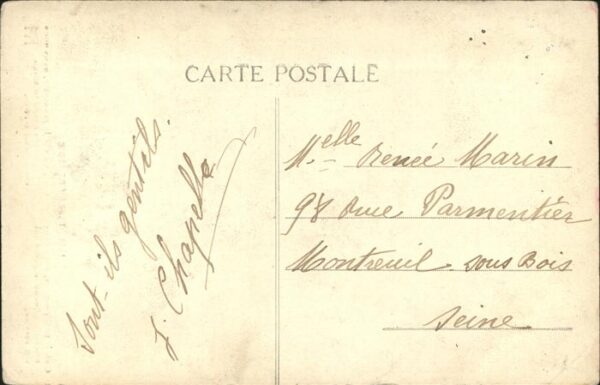 CARTE POSTALE
Sont-ils gentils.
J. Chapelle
Melle Renée Marin
98 Rue Parmentier
Montreuil sous Bois
Seine